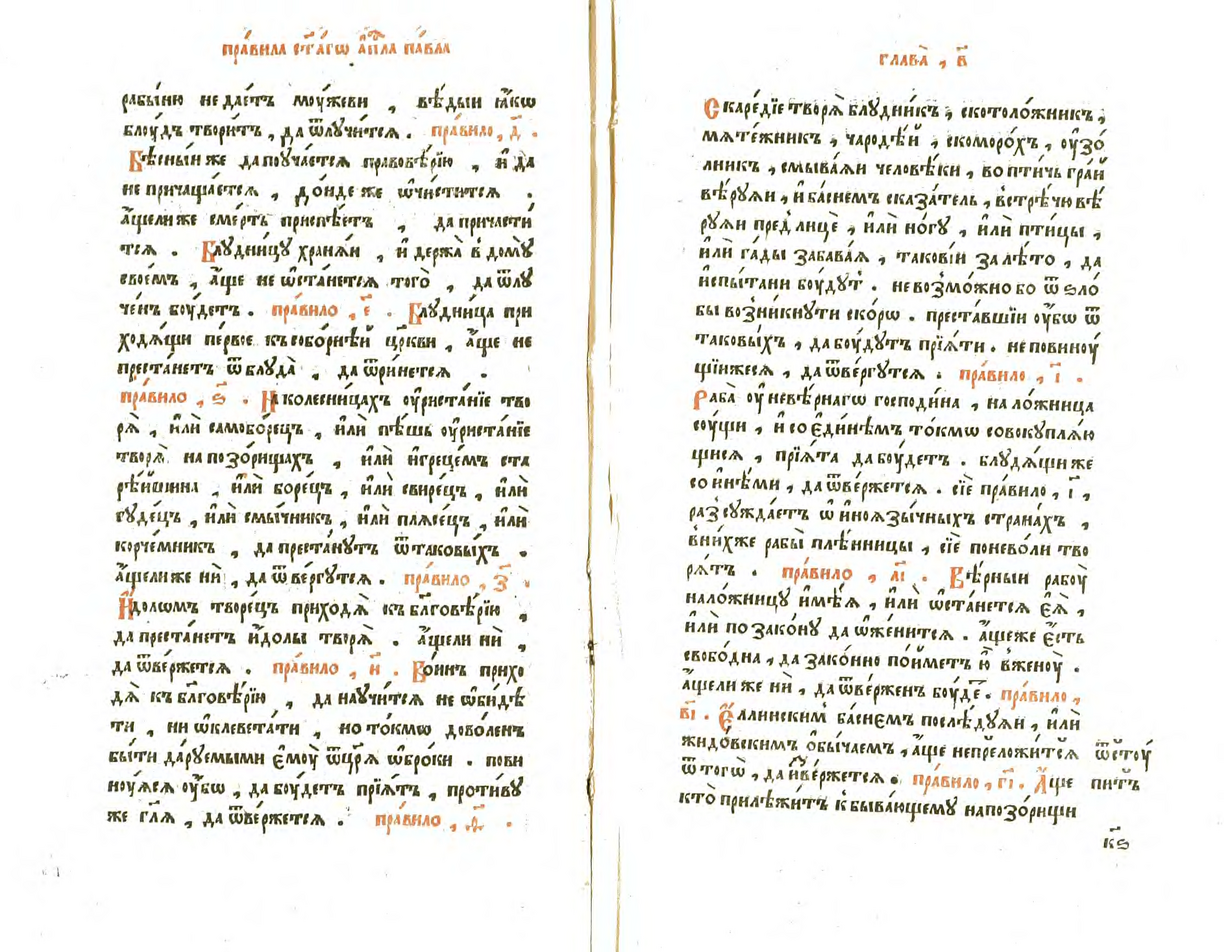 пра́вила ст҃а́гѡ а҆пⷭ҇ла па́вла
рабы́ню неда́стъ мꙋ́жеви , вѣ́дыи ꙗ҆́кѡ
блꙋ́дъ твори́тъ , да ѿлꙋчи́тсѧ . пра́вило , д҃ .
Бѣ́сныи же дапоꙋча́етсѧ правовѣ́рїю , и҆ да
не причаща́етсѧ , до́нде же ѡ҆чи́ститсѧ .
а҆́щелиже сме́рть приспѣ́етъ , да причасти́
тсѧ . Блꙋдни́цꙋ хранѧ́и , и҆ держа̀ в домꙋ̀
свое́мъ , а҆́ще не ѡ҆ста́нетсѧ того̀ , да ѿлꙋ
че́нъ бꙋ́детъ . пра́вило , е҃ . Блꙋдни́ца при
ходѧ́щи пе́рвое къ собо́рнѣй цр҃кви , а҆́ще не
преста́нетъ ѿ блꙋда̀ , да ѿри́нетсѧ .
пра́вило , ѕ҃ . На колесни́цахъ ᲂу҆риста́нїе тво
рѧ̀ , и҆лѝ самобо́рецъ , и҆лѝ пѣ́шь ᲂу҆риста́нїе
творѧ̀ на позо́рищахъ , и҆лѝ и҆гре́цемъ ста
рѣ́йшина , и҆лѝ боре́цъ , и҆лѝ свире́цъ , и҆лѝ
гꙋде́цъ , и҆лѝ смы́чникъ , и҆лѝ плѧсе́цъ , и҆лѝ
корче́мникъ , да преста́нꙋтъ ѿ таковы́хъ .
а҆́щелиже нѝ , да ѿве́ргꙋтсѧ . пра́вило , з҃ .
И҆́дѡлѡмъ творе́цъ приходѧ̀ къ бл҃говѣ́рїю ,
да преста́нетъ и҆́долы творѧ̀ . а҆́щели нѝ ,
да ѿве́ржетсѧ . пра́вило , и҃ . Во́инъ прихо
дѧ̀ къ бл҃говѣ́рїю , да наꙋчи́тсѧ не ѡ҆би́дѣ
ти , ни ѡ҆клевета́ти , но то́кмѡ дово́ленъ
бы́ти да́рꙋемыми є҆мꙋ̀ ѿ цр҃ѧ̀ ѡ҆бро́ки . пови
нꙋ́ѧсѧ ᲂу҆̀бѡ , да бꙋ́детъ прїѧ́тъ , проти́вꙋ
же гл҃ѧ , да ѿве́ржетсѧ . пра́вило , ѳ҃ .
глава̀ , в҃
Скаре́дїе творѧ̀ блꙋдни́къ , скотоло́жникъ ,
мѧте́жникъ , чародѣ́й , скоморо́хъ , ᲂу҆зо́
лникъ , смыва́ѧи человѣ́ки , во пти́чь гра́й
вѣ́рꙋѧи , и҆ ба́снемъ сказа́тель , встрѣ́чю вѣ́
рꙋѧи пред̾ лицѐ , и҆лѝ но́гꙋ , и҆лѝ пти́цы ,
и҆лѝ га́ды забавлѧ́ѧ , таковы́й за лѣ́то , да
и҆спы́тани бꙋ́дꙋт . не возмо́жно бо ѿ ѕло́
бы возни́кнꙋти ско́рѡ . преста́вшїи ᲂу҆́бѡ ѿ
таковы́хъ , да бꙋ́дꙋтъ прїѧ́ти . не повинꙋ́
щїижесѧ , да ѿве́ргꙋтсѧ . пра́вило , і҃ .
Раба̀ ᲂу҆ невѣ́рнагѡ господи́на , нало́жница
сꙋ́щи , и҆ со є҆ди́нѣмъ то́кмѡ совокꙋплѧ́ю
щисѧ , прїѧ́та да бꙋ́детъ . блꙋдѧ́щи же
со и҆нѣ́ми , да ѿве́ржетсѧ . сїѐ пра́вило , і҃ ,
разсꙋжда́етъ ѡ҆ и҆ноѧзы́чныхъ страна́хъ ,
в ни́хже рабы̀ плѣ́нницы , сїѐ понево́ли тво
рѧ́тъ . пра́вило , а҃і . Вѣ́рныи рабꙋ̀
нало́жницꙋ и҆мѣ́ѧ , и҆лѝ ѡ҆ста́нетсѧ є҆ѧ̀ ,
и҆лѝ по зако́нꙋ да ѡ҆же́нитсѧ . а҆́щеже є҆́сть
свобо́дна , да зако́ннѡ по́йметъ ю҆̀ в женꙋ̀ .
а҆́щели же нѝ , да ѿве́рженъ бꙋ́деⷮ . пра́вило ,
в҃і . Є҆́ллинским̾ ба́снемъ послѣ́дꙋѧи , и҆лѝ
жидо́вскимъ ѻ҆бы́чаемъ , а҆́ще непрело́житсѧ
ѿстꙋ́
ѿ тогѡ̀ , да и҆зве́ржетсѧ . пра́вило , г҃і . А҆́ще
питъ
кто̀ прилѣ́житъ к быва́ющемꙋ на позо́рищи
к҃ѕ